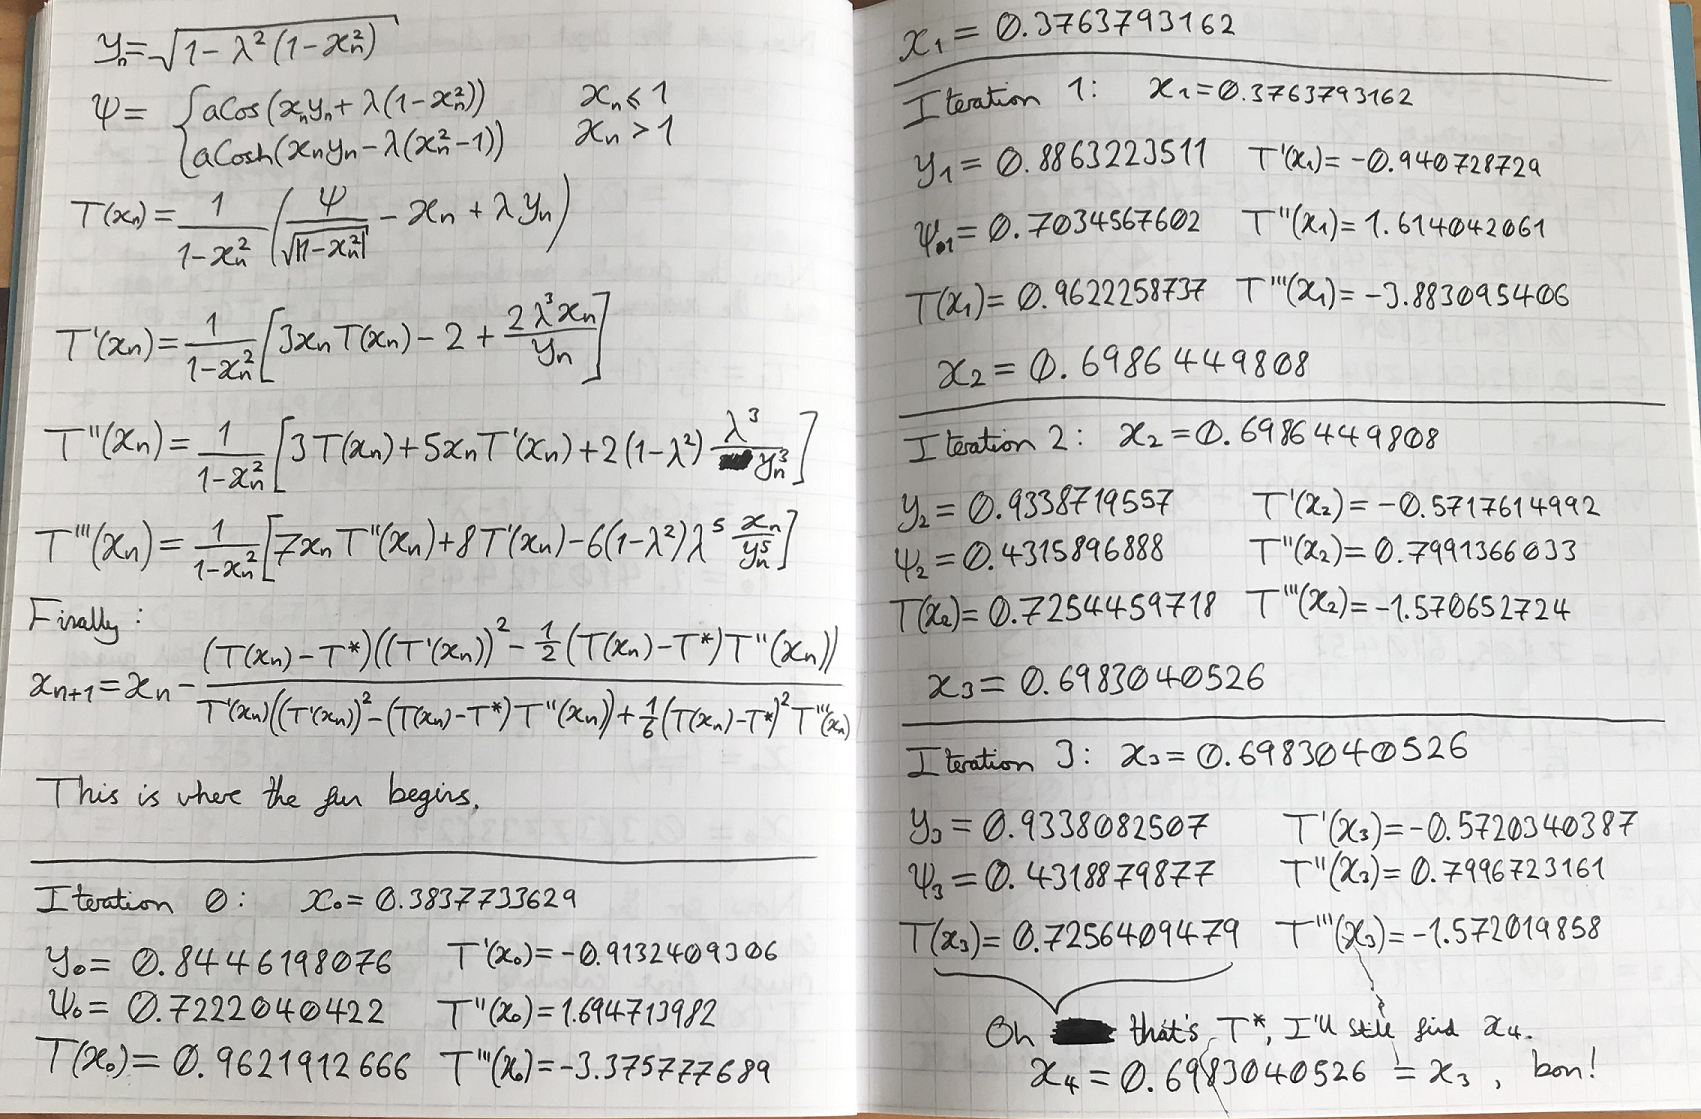 yₙ = √(1 − λ²(1 − xₙ²))
ψ = { aCos(xₙyₙ + λ(1 − xₙ²))   xₙ ≤ 1
aCosh(xₙyₙ − λ(xₙ² − 1))   xₙ > 1
T(xₙ) = 1/(1 − xₙ²) (ψ/√|1 − xₙ²| − xₙ + λyₙ)
T'(xₙ) = 1/(1 − xₙ²) [3xₙT(xₙ) − 2 + 2λ³xₙ/yₙ]
T''(xₙ) = 1/(1 − xₙ²) [3T(xₙ) + 5xₙT'(xₙ) + 2(1 − λ²) λ³/yₙ³]
T'''(xₙ) = 1/(1 − xₙ²) [7xₙT''(xₙ) + 8T'(xₙ) − 6(1 − λ²)λ⁵ xₙ/yₙ⁵]
Finally:
xₙ₊₁ = xₙ − (T(xₙ) − T*)((T'(xₙ))² − ½(T(xₙ) − T*)T''(xₙ)) / T'(xₙ)((T'(xₙ))² − (T(xₙ) − T*)T''(xₙ)) + ⅙(T(xₙ) − T*)²T'''(xₙ)
This is where the fun begins.
Iteration 0: x₀ = 0.3837733629
y₀ = 0.8446198076 T'(x₀) = −0.9132409306
ψ₀ = 0.7222040422 T''(x₀) = 1.694713982
T(x₀) = 0.9621912666 T'''(x₀) = −3.375777689
x₁ = 0.3763793162
Iteration 1: x₁ = 0.3763793162
y₁ = 0.8863223511 T'(x₁) = −0.940728729
ψ₁ = 0.7034567602 T''(x₁) = 1.614042061
T(x₁) = 0.9622258737 T'''(x₁) = −3.883095406
x₂ = 0.6986449808
Iteration 2: x₂ = 0.6986449808
y₂ = 0.9338719557 T'(x₂) = −0.5717614992
ψ₂ = 0.4315896888 T''(x₂) = 0.7991366033
T(x₂) = 0.7254459718 T'''(x₂) = −1.570652724
x₃ = 0.6983040526
Iteration 3: x₃ = 0.6983040526
y₃ = 0.9338082507 T'(x₃) = −0.5720340387
ψ₃ = 0.4318879877 T''(x₃) = 0.7996723161
T(x₃) = 0.7256409479 T'''(x₃) = −1.572019858
Oh that's T*, I'll still find x₄.
x₄ = 0.6983040526 = x₃, bon!